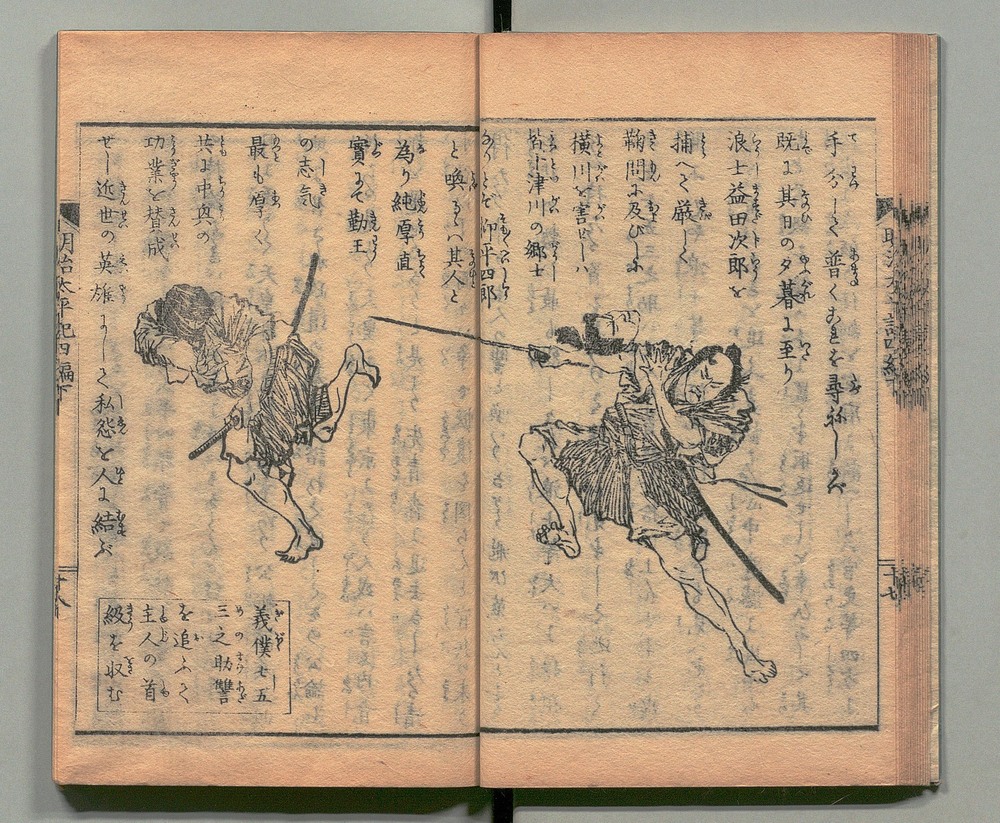 手分して普くこれを尋ねしかバ
既に其日の夕暮に至り
浪士益田次郎を
捕へて厳しく
鞠問に及びしに
横川を害せしハ
皆十津川の郷士
と喚るハ其人と
為り純厚直
實にて勤王
の志気
最も厚く
共に中興の
功業を賛成
せし近世の英雄にして私怨を人に結ぶ
義僕七五
三之助讐
を追ふて
主人の首
級を収む
明治太平記四編下
十七
十八